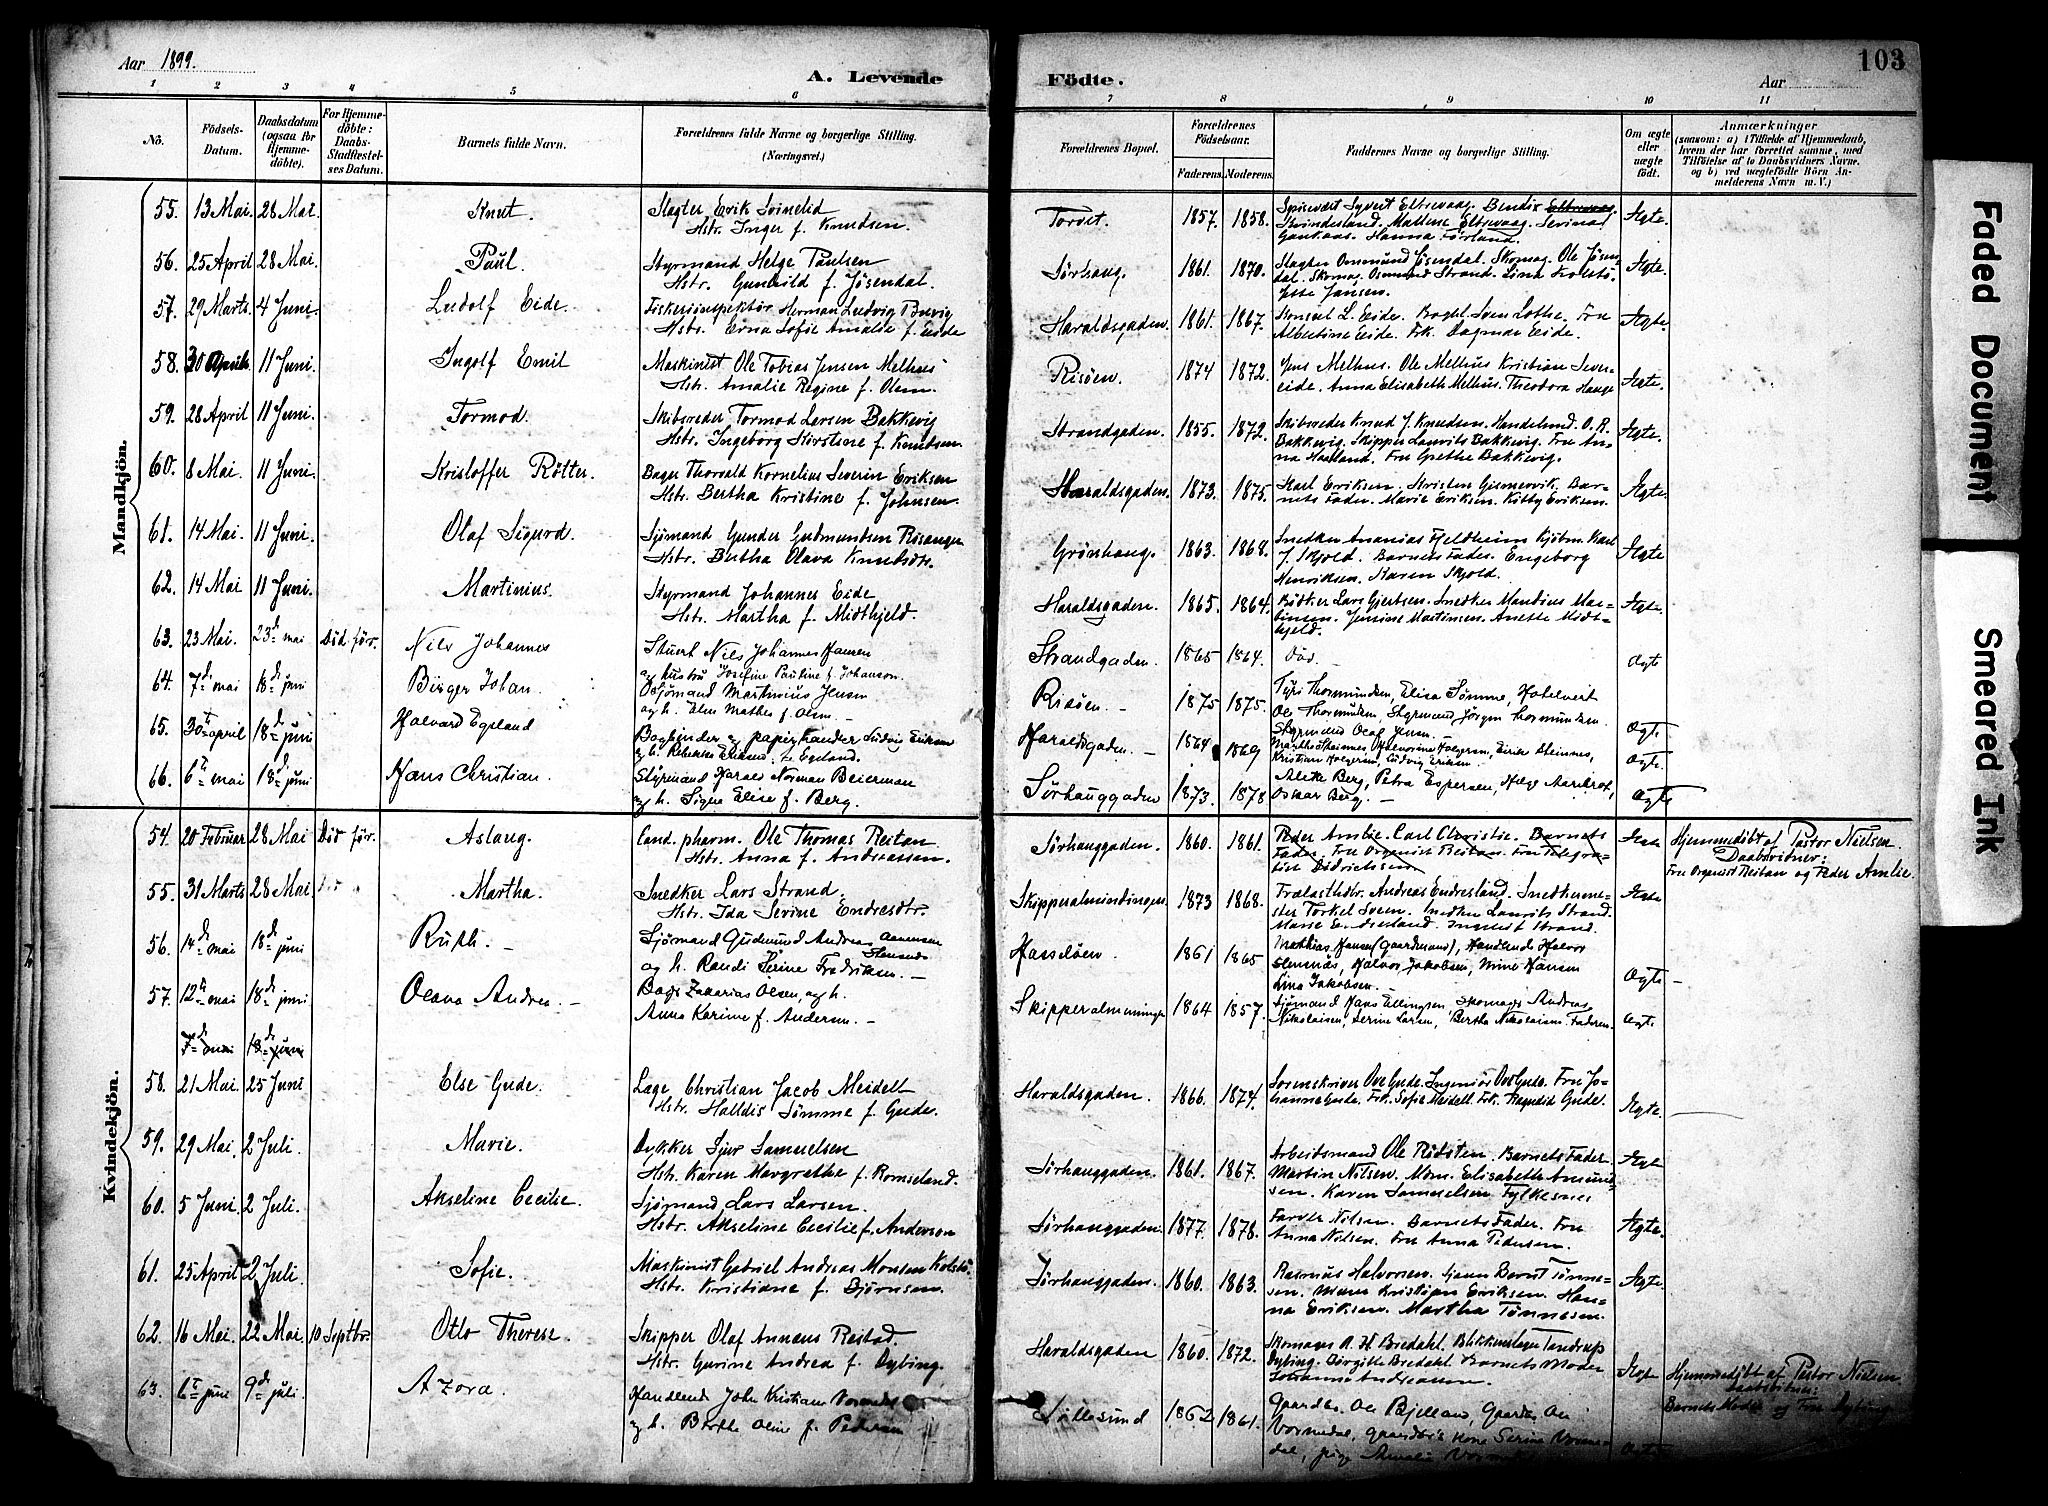 Aar 1899.
A. Levende
Födte.
Aar
103
1 2 3 4 5 6 7 8 9 10 11
No.
Födsels-Datum.
Daabsdatum (ogsaa for Hjemmedöbte).
For Hjemmedöbte: Daabs-Stadfæstelses Datum.
Barnets fulde Navn.
Forældrenes fulde Navne og borgerlige Stilling. (Næringsvei.)
Forældrenes Bopæl.
Forældrenes Födselsaar.
Faderens. Moderens.
Faddernes Navne og borgerlige Stilling.
Om ægte eller uægte födt.
Anmærkninger
(saasom: a) i Tilfælde af Hjemmedaab, hvem der har forrettet samme, med Tilföielse af to Daabsvidners Navne. og b) ved uægtefödte Börn Anmelderens Navn m. V.)
Mandkjön.
55. 13 Mai. 28 Mai. Knut. Slagter Erik Svinelid Hstr. Inger f. Knudsen. Torvet. 1857. 1858. Ægte.
56. 25 April 28 Mai. Paul. Styrmand Helge Paulsen Hstr. Gunhild f. Jösendal. Sörhaug. 1861. 1870. Ægte.
57. 29 Marts 4 Juni. Ludolf Eide. Fiskeriinspektör Herman Ludvig Buvig Hstr. Erna Sofie Amalde f. Eide Haraldsgaden. 1861. 1867. Konsul L. Eide. Baght. Sven Lothe. Fru Albertine Eide. Frk. Dagmar Eide. Ægte.
58. 30 April. 11 Juni. Ingolf Emil Maskinist Ole Tobias Jensen Melhus Hstr. Amalie Regine f. Olsen. Risöen. 1874 1872. Jens Melhus. Ole Melhus Kristian Severeide. Anna Elisabeth Melhus. Theodora Hauge Ægte.
59. 28 April 11 Juni. Tormod. Skibsreder Tormod Larsen Bakkevig Hstr. Ingeborg Kirstine f. Knudsen. Strandgaden. 1855. 1872. Skibsreder Knud J. Knudsen. Handelsmd. O. R. Bakkevig. Skipper Laurits Bakkevig. Fru Anna Haaland. Fru Grethe Bakkevig. Ægte.
60. 8 Mai. 11 Juni. Kristoffer Rötter. Bager Thorvald Kornelius Severin Eriksen Hstr. Bertha Kristine f. Johnsen. Haraldsgaden. 1873. 1875. Karl Eriksen. Kirsten Gismervik. Barnets Fader. Marie Eriksen. Kitby Eriksen. Ægte.
61. 14 Mai. 11 Juni. Olaf Sigurd. Sjömand Gunder Gudmundsen Risanger Hstr. Bertha Olava Knudsdtr. Grönhaug. 1863. 1868. Snedker Ananias Fjeldheim Kjöbm. Karl J. Skjold. Barnets Fader. Engeborg Henriksen. Karen Skjold. Ægte
62. 14 Mai 11 Juni. Martinius. Styrmand Johannes Eide Hstr. Martha f. Midthjeld. Haraldsgaden. 1865. 1864. Bödker Lars Gjertsen. Snedker Mandius Martinsen. Jensine Martinsen. Anette Midthjeld. Ægte.
63. 23 Mai. 23de mai Död för. Nils Johannes Stuert Nils Johannes Hansen og hustru Josefine Pauline f. Johanson. Strandgaden. 1865 1864. Död. Ægte
64. 7de mai 18de juni Birger Johan. Sjömand Martinius Jensen og h. Else Mathea f. Olsen. Risöen. 1875 1875. Tyri Thormundsen, Elisa Sömme, Hotelvert Ole Thormundsen, Styrmand Jörgen Thormundsen. Styrmand Olaf Jensen. Ægt.
65. 30te april 18de juni Halvard Egeland Bogbinder og papirhandler Ludvig Eriksen og h. Rebekka Eriksen f. Egeland. Haraldsgaden. 1864 1869 Kristian Holgersen, Ludvig Eriksen. Ægt.
66. 6te mai 18de juni Hans Christian. Styrmand Harald Norman Beierman og h. Signe Elise f. Berg. Sörhauggaden 1873. 1878 Alette Berg, Petra Espersen, Helge Aarekrot, Oskar Berg. Ægte
Kvindekjön.
54. 20 Februar 28 Mai Död för. Aslaug. Cand. pharm. Ole Thomas Reitan. Hstr. Anna f. Andreassen. Sörhauggaden. 1860. 1861. Peder Amlie. Carl Christie. Barnets Fader. Fru Organist Reitan. Fru Didrichsen Ægte Hjemmedöbt af Pastor Nielsen. Daabsvidner: Fru Organist Reitan og Peder Amlie.
55. 31 Marts 28 Mai. Martha. Snedker Lars Strand. Hstr. Ida Serine Endresdtr. Skipperalmindingen. 1873 1868. Trælasthdlr. Andreas Endresland. Snedkermester Torkel Sveen. Snedker Laurits Strand. Marie Endresland. Ingeborg Strand. Ægte
56. 14de mai 18de juni Ruth. Sjömand Gudmund Andreas Aanensen Stensnes og h. Randi Serine Fredriksen. Hasselöen. 1861 1865 Mathias Hansen (gaardmand), Handlende Halvor Stensnes, Halvor Jakobsen, Mine Hansen Lina Jakobsen. Ægt
57. 12te mai 18de juni Olava Andrea. Bager Zakarias Olsen, og h. Anna Karine f. Andersen. Skipperalmeninge 1864 1857. Sjömand Hans Ellingsen, Skomager Andreas Nikolaisen, Serine Larsen, Bertha Nikolaisen. Faderen. Ægt.
7de mai 18de juni
58. 21 Mai. 25 Juni Else Gude. Læge Christian Jacob Meidell Hstr. Halldis Sömme f. Gude. Haraldsgaden. 1866. 1874. Sorenskriver Ove Gude. Ingeniör Ove Gude. Fru Johanne Gude. Frk. Sofie Meidell. Frk. Ragnhild Gude. Ægte.
59. 29 Mai. 2 Juli. Marie. Dykker Sjur Samuelsen Hstr. Karen Margrethe f. Romseland. Sörhauggaden. 1861. 1867. Arbeidsmand Ole Rödsten. Barnets Fader. Martin Nilsen. Mdm. Elisabeth Amundsen. Karen Samuelsen Fylkesnes Ægte
60. 5 Juni. 2 Juli. Akseline Cecilie. Sjömand Lars Larsen. Hstr. Akseline Cecilie f. Anderson Sörhauggaden. 1877. 1878. Farver Nilsen. Barnets Fader. Fru Anna Nilsen. Fru Anna Pedersen. Ægte.
61. 25 April 2 Juli. Sofie. Maskinist Gabriel Andreas Monsen Kolstö. Hstr. Kristiane f. Björnsen. Sörhauggaden. 1860. 1863. Rasmus Halvorsen. Svenn Bernt Tönnesen. Mdm Kristian Eriksen. Hanna Eriksen. Martha Tönnesen. Ægte.
62. 16 Mai. 22 Mai. 10 Septbr. Otto Therese. Skipper Olaf Annæus Reistad Hstr. Gurine Andrea f. Dybing. Haraldsgaden 1860. 1872. Skomager A. H. Bredahl. Blikkenslager Tandrup Dybing. Börgitte Bredahl. Barnets Moder Johanne Andreassen. Ægte Hjemmedöbt af Pastor Nielsen Daabsvidner: Barnets Moder og Fru Dybing
63. 6te juni 9de juli. Azora. Handlende John Kristian Vormedal og h. Berthe Oline f. Pedersen 1862 1861. Gaardbr. Ole Bjelland, Gaardbr. Ole Vormedal, gaardbr's kone Serine Vormedal, pige Amalie
Faded Document
Smeared Ink